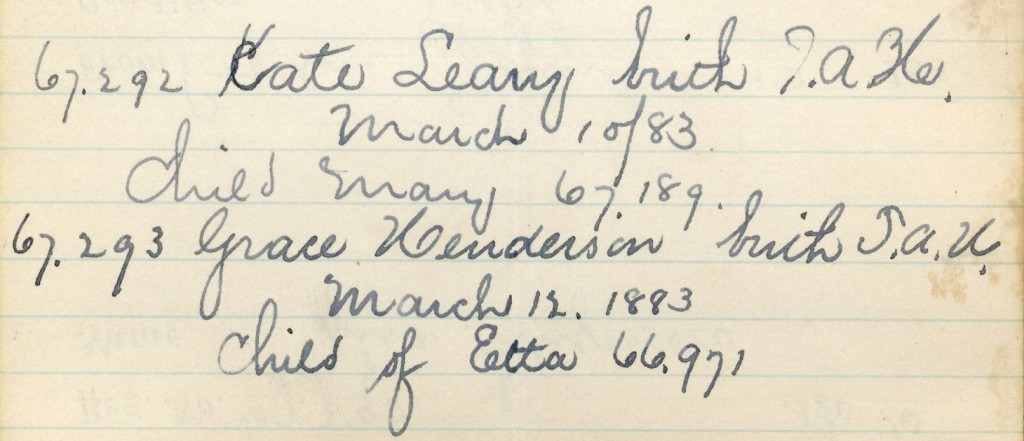 67.292 Kate Leary birth T.A.H.
March 10/83
Child Mary 67.189.
67.293 Grace Henderson birth T.A.H.
March 12. 1883
Child of Etta 66.971